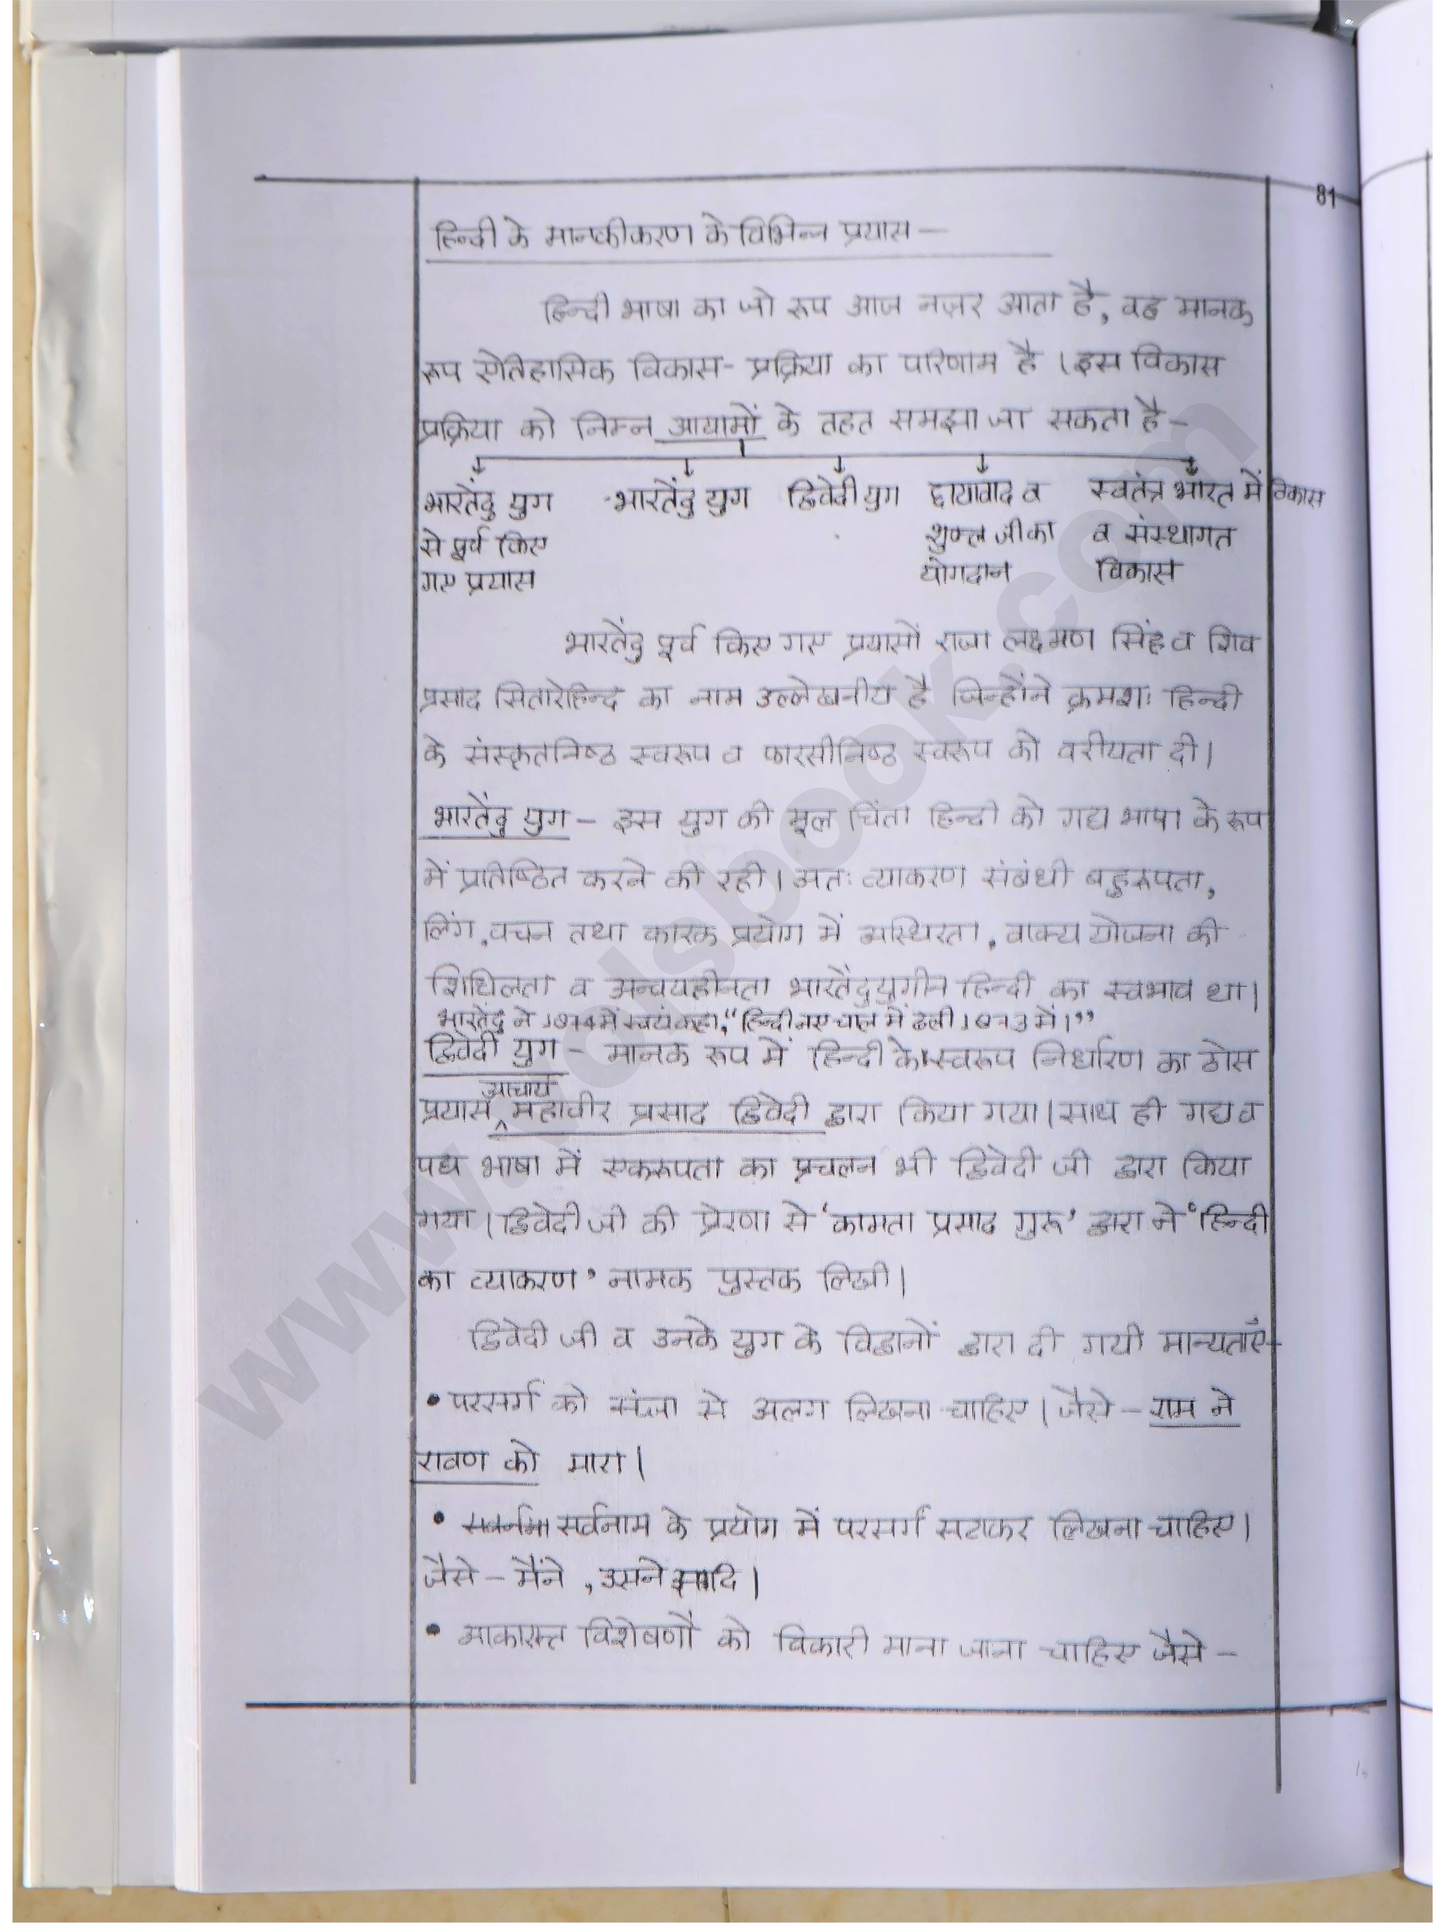 81
हिन्दी के मानकीकरण के विभिन्न प्रयास —
हिन्दी भाषा का जो रूप आज नज़र आता है, वह मानक
रूप ऐतिहासिक विकास - प्रक्रिया का परिणाम है । इस विकास
प्रक्रिया को निम्न आयामों के तहत समझा जा सकता है -
भारतेंदु युग से पूर्व किए गए प्रयास
भारतेंदु युग
द्विवेदी युग
छायावाद व शुक्ल जी का योगदान
स्वतंत्र भारत में विकास व संस्थागत विकास
भारतेंदु पूर्व किए गए प्रयासों राजा लक्ष्मण सिंह व शिव
प्रसाद सितारेहिन्द का नाम उल्लेखनीय है जिन्होंने क्रमशः हिन्दी
के संस्कृतनिष्ठ स्वरूप व फारसीनिष्ठ स्वरूप को वरीयता दी।
भारतेंदु युग - इस युग की मूल चिंता हिन्दी को गद्य भाषा के रूप
में प्रतिष्ठित करने की रही। अतः व्याकरण संबंधी बहुरूपता,
लिंग, वचन तथा कारक प्रयोग में अस्थिरता, वाक्य योजना की
शिथिलता व अन्वयहीनता भारतेंदुयुगीन हिन्दी का स्वभाव था।
भारतेंदु ने 1874 में स्वयं कहा, "हिन्दी नए चाल में ढली 1873 में।"
द्विवेदी युग - मानक रूप में हिन्दी के स्वरूप निर्धारण का ठोस
प्रयास आचार्य महावीर प्रसाद द्विवेदी द्वारा किया गया। साथ ही गद्य व
पद्य भाषा में एकरूपता का प्रचलन भी द्विवेदी जी द्वारा किया
गया। द्विवेदी जी की प्रेरणा से 'कामता प्रसाद गुरू' द्वारा ने 'हिन्दी
का व्याकरण' नामक पुस्तक लिखी।
द्विवेदी जी व उनके युग के विद्वानों द्वारा दी गयी मान्यताएँ-
• परसर्ग को संज्ञा से अलग लिखना चाहिए। जैसे - राम ने
रावण को मारा।
• सर्वनाम के प्रयोग में परसर्ग सटाकर लिखना चाहिए।
जैसे - मैंने, उसने आदि।
• आकारान्त विशेषणों को विकारी माना जाना चाहिए जैसे -